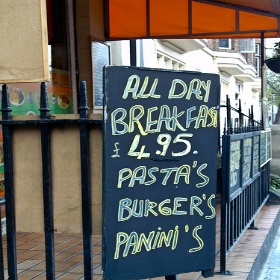 ALL DAY
BREAKFAST
£ 4.95.
PASTA'S
BURGER'S
PANINI'S